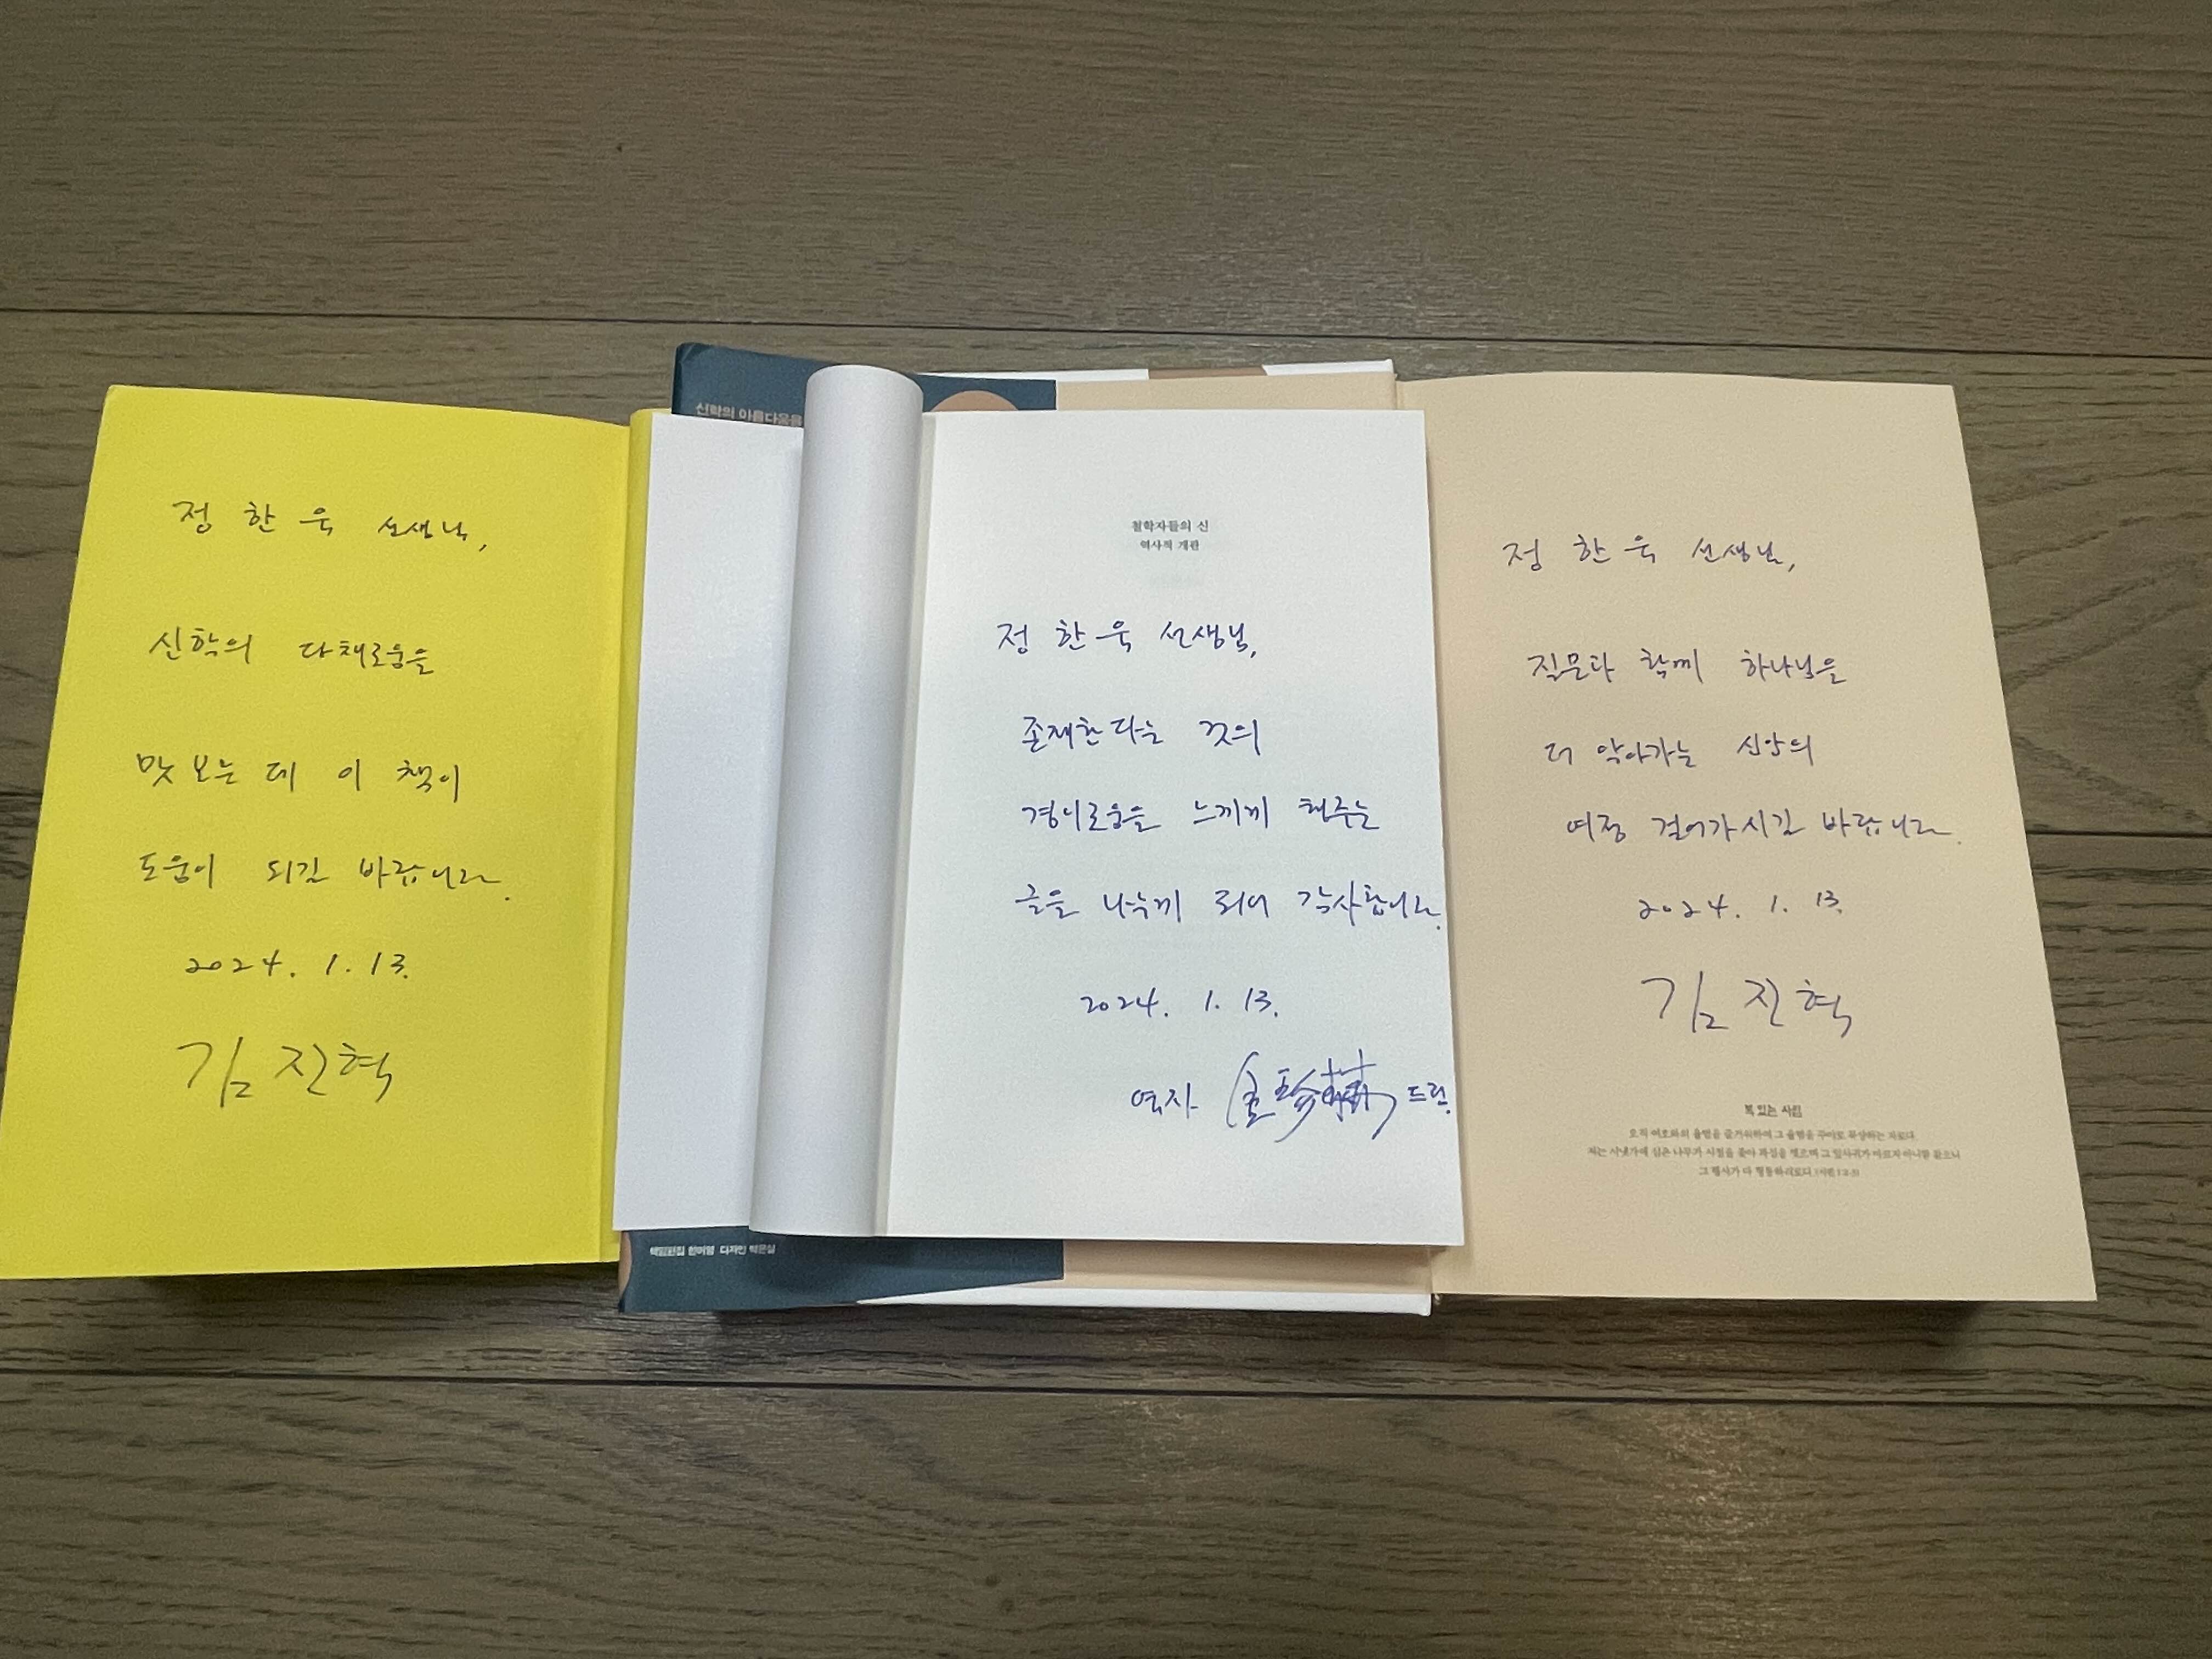 정 한 욱 선생님,
신학의 다채로움을
맛 보는 데 이 책이
도움이 되길 바랍니다.
2024. 1. 13.
김 진 혁
신학의 아름다움을
책임편집 디자인
철학자들의 신
역사적 개관
정 한 욱 선생님,
존재한다는 것의
경이로움을 느끼게 해주는
글을 나누게 되어 감사합니다.
2024. 1. 13.
역자 金珍赫 드림.
정 한 욱 선생님,
질문과 함께 하나님을
더 알아가는 신앙의
여정 걸어가시길 바랍니다.
2024. 1. 13.
김 진 혁
복 있는 사람
오직 여호와의 율법을 즐거워하여 그 율법을 주야로 묵상하는 자로다.
저는 시냇가에 심은 나무가 시절을 좇아 과실을 맺으며 그 잎사귀가 마르지 아니함 같으니
그 행사가 다 형통하리로다.(시편 1:2-3)